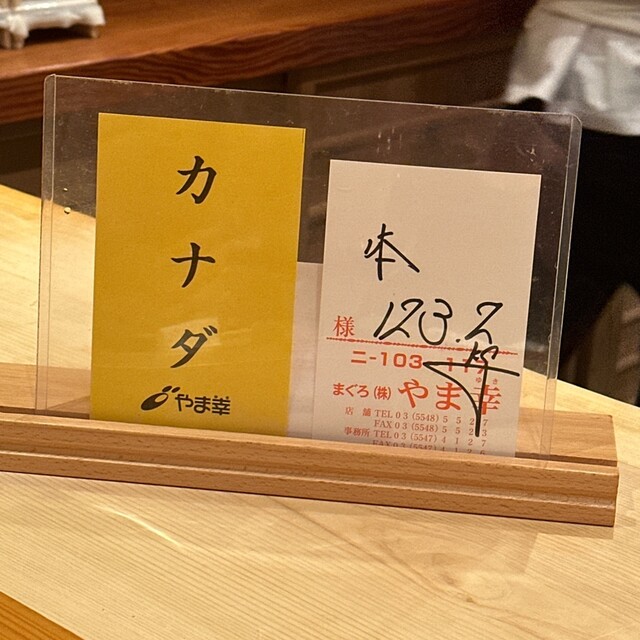 カナダ
やま幸
本
123.2
様
ニ-103
まぐろ(株)やま幸
店舗 TEL 03 (5548) 5 5 2 7
FAX 03 (5548) 5 5 2 3
事務所 TEL 03 (5547) 4 1 2 7